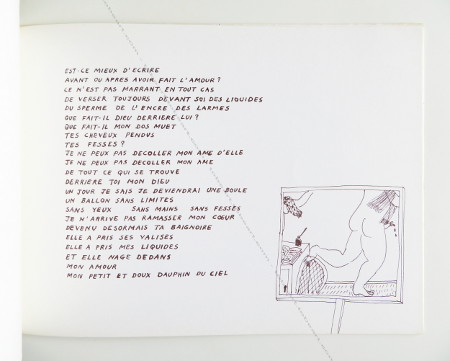 EST-CE MIEUX D'ECRIRE
AVANT OU APRES AVOIR FAIT L'AMOUR ?
CE N'EST PAS MARRANT EN TOUT CAS
DE VERSER TOUJOURS DEVANT SOI DES LIQUIDES
DU SPERME DE L'ENCRE DES LARMES
QUE FAIT-IL DIEU DERRIERE LUI ?
QUE FAIT-IL MON DOS MUET
TES CHEVEUX PENDUS
TES FESSES ?
JE NE PEUX PAS DECOLLER MON AME D'ELLE
JE NE PEUX PAS DECOLLER MON AME
DE TOUT CE QUI SE TROUVE
DERRIERE TOI MON DIEU
UN JOUR JE SAIS JE DEVIENDRAI UNE BOULE
UN BALLON SANS LIMITES
SANS YEUX SANS MAINS SANS FESSES
JE N'ARRIVE PAS RAMASSER MON CŒUR
DEVENU DESORMAIS TA BAIGNOIRE
ELLE A PRIS SES VALISES
ELLE A PRIS MES LIQUIDES
ET ELLE NAGE DEDANS
MON AMOUR
MON PETIT ET DOUX DAUPHIN DU CIEL